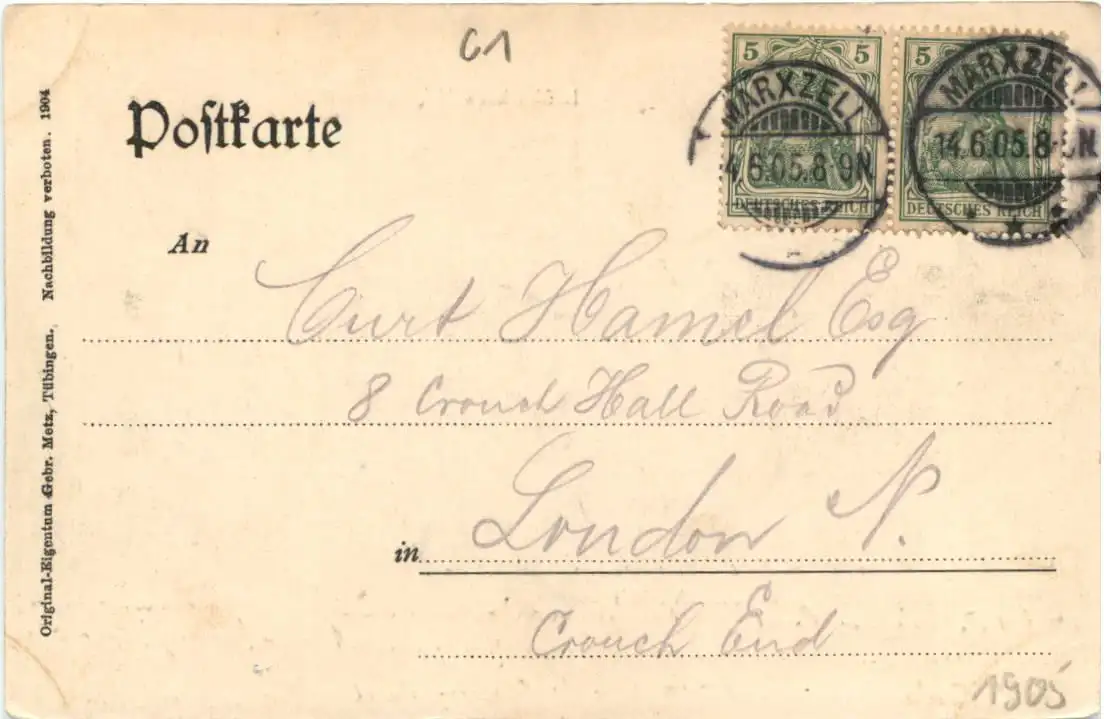 G1
5 5 5
MARXZELL
4.6.05.8-9N
DEUTSCHES REICH
MARXZELL
14.6.05.8-9N
DEUTSCHES REICH
Postkarte
An
Curt Hamel Esq
8 Crouch Hall Road
in London N.
Crouch End
1905
Original-Eigentum Gebr. Metz, Tübingen. Nachbildung verboten. 1904